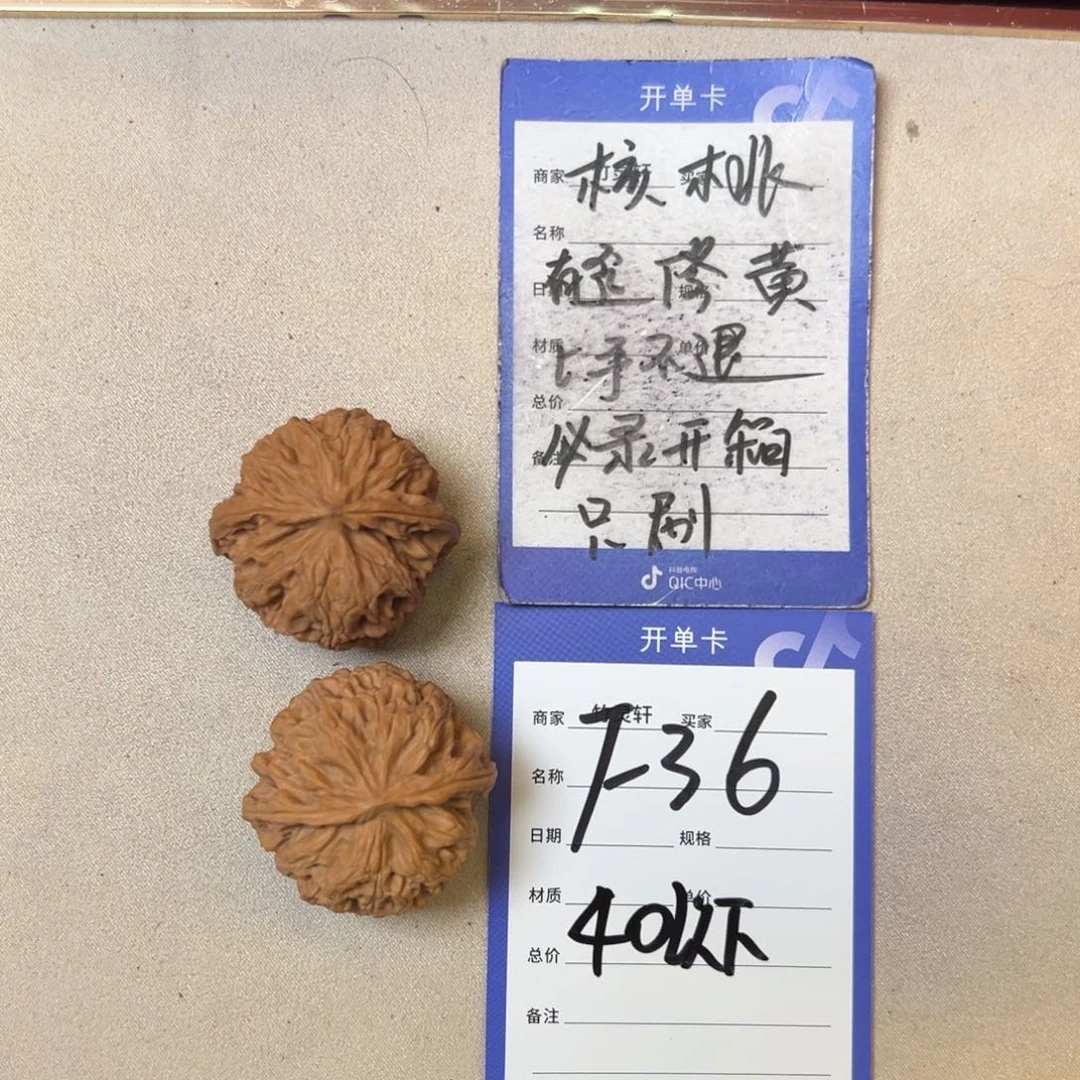 开单卡
商家 买家
核桃
名称
有歪修黄
日 规格
材质 单价
上手不退
总价
备注
必录开箱
只刷
抖音电商
QIC中心
开单卡
商家 竹灵轩 买家
7-36
名称
日期 规格
材质 单价
40以下
总价
备注